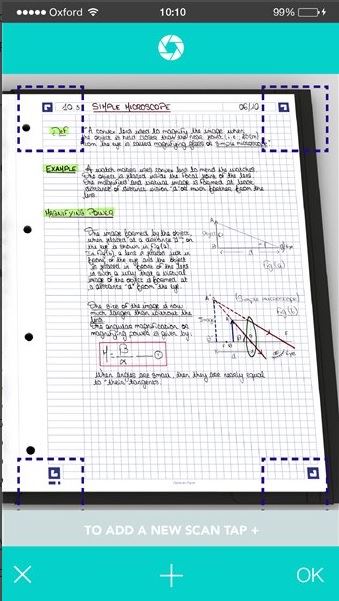 Oxford 10:10 99%
10.3 SIMPLE MICROSCOPE 06/10
Def "A convex lens used to magnify the image when
the object is held closer than the near point (i.e., 25cm)
from the eye is called magnifying glass or simple microscope"
EXAMPLE A watch maker uses convex lens to mend the watches
the object is placed inside the focal point of the lens
the magnified and virtual image is formed at least
distance of distinct vision "d" or much farther from the
lens.
MAGNIFYING POWER
The image formed by the object,
when placed at a distance "d", on
the eye is shown in Fig(a)
In Fig(b), a lens is placed just in
front of the eye and the object
is placed in front of the lens
in such a way that a virtual
image of the object is formed at
a distance "d" from the eye.
Object
Eye
Fig(a)
The size of the image is now
much larger than without the
lens.
The angular magnification or
magnifying power is given by.
(Simple microscope)
Fig(b)
Image
Eye
M = β/α — ①
When angles are small, then they are nearly equal
to "their" tangents.
TO ADD A NEW SCAN TAP +
OK